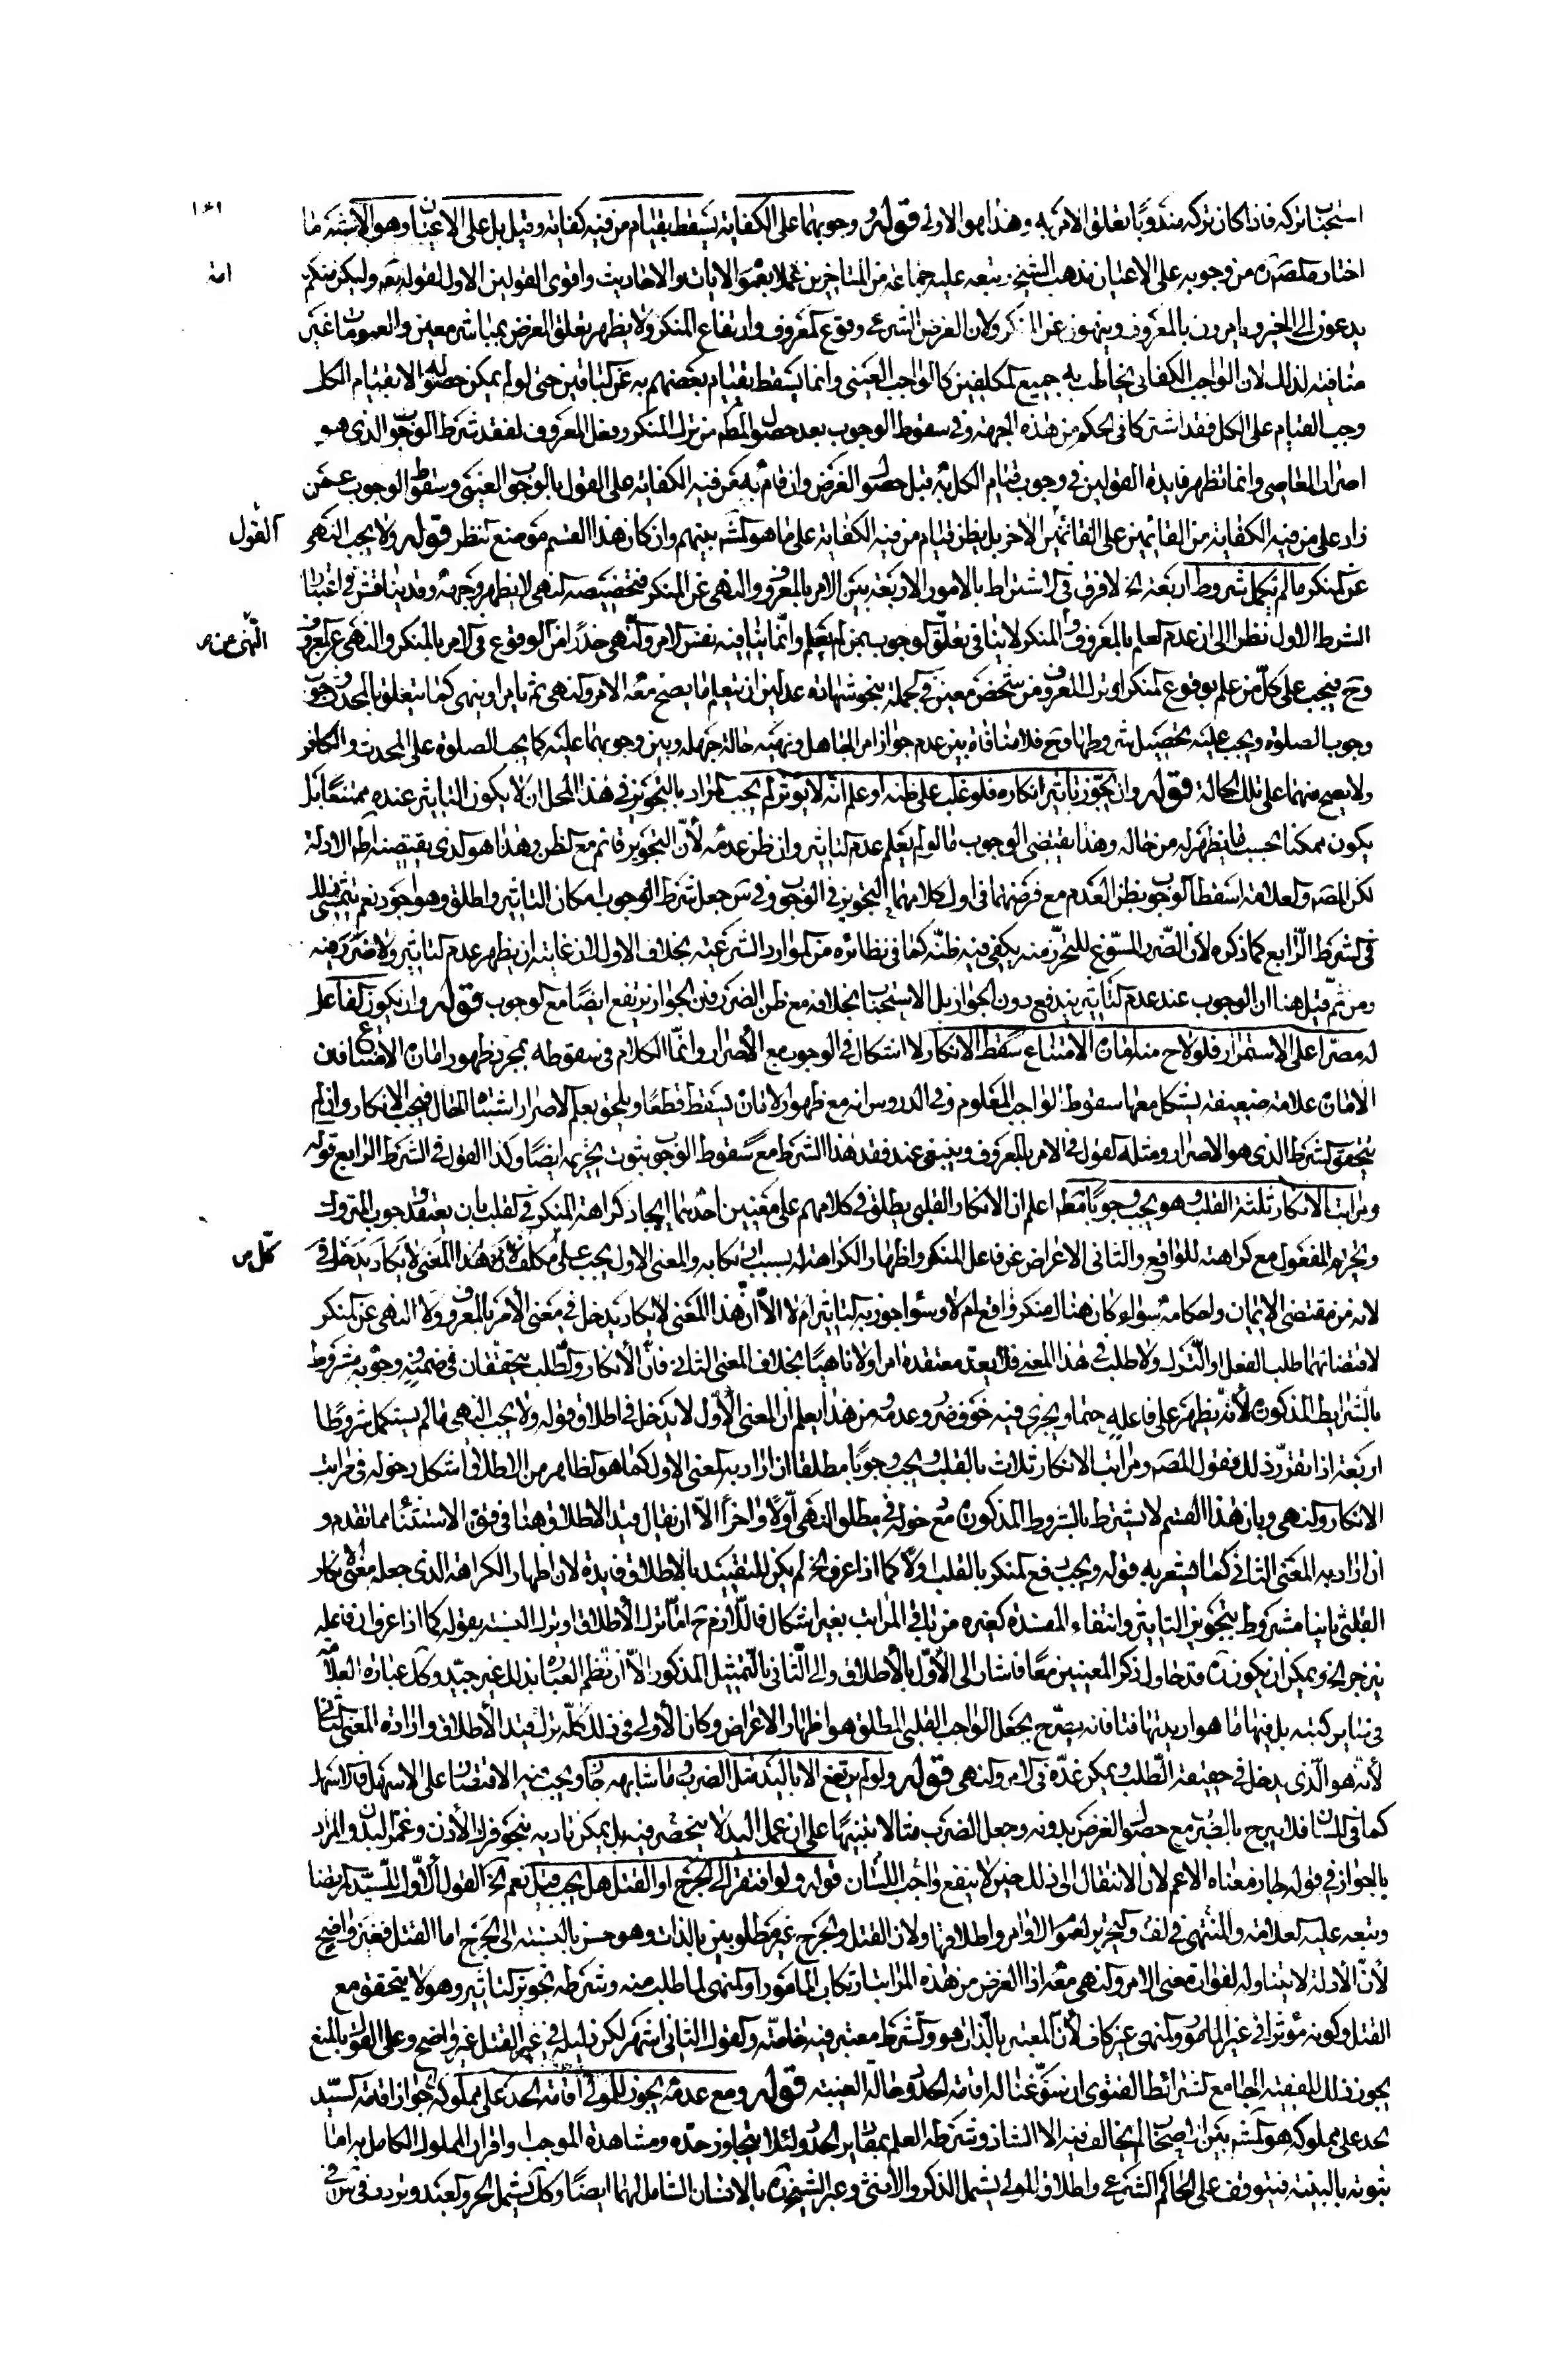 ١٦١
استحباب تركه فاذا كان تركه مندوبا تعلق الامر به وهذا هو الاولى قوله وجوبهما على الكفاية يسقط بقيام من فيه كفاية وقيل بل على الاعيان وهو الاشبه ما
اختاره المص ره من وجوبه على الاعيان مذهب الشيخ ره وتبعه عليه جماعة من المتاخرين عملا بعموم الايات والاحاديث واقوى القولين الاول لقوله تعه ولتكن منكم
امة
يدعون الى الخير ويامرون بالمعروف وينهون عن المنكر ولان الغرض الشرعى وقوع المعروف وارتفاع المنكر ولا يظهر تعلق الغرض بمباشر معين والعمومات غير
منافية لذلك لان الواجب الكفائى يخاطب به جميع المكلفين كالواجب العينى وانما يسقط بقيام بعضهم به عن الباقين حتى لو لم يمكن حصوله الا بقيام الكل
وجب القيام على الكل فقد اشتركا فى الحكم من هذه الجهة وفى سقوط الوجوب بعد حصول المطم من ترك المنكر وفعل المعروف لفقد شرط الوجوب الذى هو
اصرار المعاصى وانما تظهر فايدة القولين فى وجوب قيام الكل به قبل حصول الغرض وان قام به من فيه الكفاية على القول بالوجوب العينى وسقوط الوجوب عمن
زاد على من فيه الكفاية من القائمين على القائمين الاخر بل يظن قيام من فيه الكفاية على ما هو المشه بينهم وان كان هذا القسم موضع النظر قوله ولا يجب النهى
القول
عن المنكر ما لم يكمل شروط اربعة الخ لا فرق فى اشتراط بالامور الاربعة بين الامر بالمعروف والنهى عن المنكر فتخصيصه النهى لا يظهر وجهه وقد يناقش فى اعتبار
الشرط الاول نظرا الى ان عدم العلم بالمعروف والمنكر لا ينافى تعلق الوجوب بمن لم يعلم وانما ينافيه نفس الامر والنهى حذرا من الوقوع فى الامر بالمنكر والنهى عن المعروف
النهى عن ص
وح فيجب على كل من علم بوقوع المنكر او ترك المعروف من شخص معين فى الجملة بنحو شهادة عدلين ان يتعلم ما يصح معه الامر والنهى ثم يامر او ينهى كما يتعلق بالمحدث وجوب
وجوب الصلوة ويجب عليه تحصيل شروطها وح فلا منافاة بين عدم جواز امر الجاهل ونهيه حالة جهله وبين وجوبهما عليه كما يجب الصلوة على المحدث والكافر
ولا يصح منهما على تلك الحالة قوله وان يجوز تاثير انكاره فلو غلب على ظنه او علم انه لا يؤثر لم يجب المراد بالتجويز فى هذا المحل ان لا يكون التاثير عنده ممتنعا بل
يكون ممكنا بحسب ما يظهر له من حاله وهذا يقتضى الوجوب ما لو لم يعلم عدم التاثير وان ظن عدمه لان التجويز قائم مع الظن وهذا هو الذى يقتضيه اطم الادلة
لكن المصه والعلامة اسقطا الوجوب بظن العدم مع فرضهما فى اول كلامهما التجويز فى الوجوب وفى س جعل شرط الوجوب امكان التاثير واطلق وهو اجود نعم يتمشى ذلك
فى الشرط الرابع كما ذكره لان الضرر المسوغ للتحرز منه يكفى فيه ظنه كما فى نظائره من الموارد الشرعية بخلاف الاول اذ غايته ان يظهر عدم التاثير ولا ضرر فيه
ومن ثم قيل هنا ان الوجوب عند عدم التاثير يندفع دون الجواز بل الاستحباب بخلافه مع ظن الضرر فان الجواز يرتفع ايضا مع الوجوب قوله وان يكون الفاعل
له مصرا على الاستمرار فلو لاح منه امارة الامتناع سقط الانكار لا اشكال فى الوجوب مع الاصرار وانما الكلام فى سقوطه بمجرد ظهور امارة الامتناع فان
الامارة علامة ضعيفة يشكل معها سقوط الواجب المعلوم وفى الدروس انه مع ظهور الامارة يسقط قطعا ويلحق بعلم الاصرار اشتباه الحال فيجب الانكار وان لم
يتحقق الشرط الذى هو الاصرار ومثله القول فى الامر بالمعروف وينبغى عند فقد هذا الشرط مع سقوط الوجوب ثبوت تحريمه ايضا وكذا القول فى الشرط الرابع قوله
ومراتب الانكار ثلثة القلب وهو يجب وجوبا مطم اعلم ان الانكار القلبى يطلق فى كلامهم على معنيين احدهما ايجاد كراهة المنكر فى القلب بان يعتقد وجوب المتروك
وتحريم المفعول مع كراهته للواقع والثانى الاعراض عن فاعل المنكر واظهار الكراهة له بسبب ارتكابه والمعنى الاول يجب على مكلف
كل ص
لانه من مقتضى الايمان واحكامه سواء كان هناك منكر واقع ام لا وسواء جوز به التاثير ام لا الا ان هذا المعنى لا يكاد يدخل فى معنى الامر بالمعروف ولا النهى عن المنكر
لاقتضائهما طلب الفعل او الترك ولا طلب فى هذا المعنى فلا يعد معتقده امرا ولا ناهيا بخلاف المعنى الثانى فان الانكار والطلب يتحققان فى ضمنه ووجوبه مشروط
بالشرايط المذكورة لانه يظهر على فاعله حتما ويجرى فيه خوف ضرر وعدمه ومن هذا يعلم ان المعنى الاول لا يدخل فى اطلاق قوله ولا يجب النهى ما لم يستكمل شروطا
اربعة اذا تقرر ذلك فقول المصه ومراتب الانكار ثلاث بالقلب ويجب وجوبا مطلقا ان اراد به المعنى الاول كما هو الظاهر من الاطلاق اشكل دخوله فى مراتب
الانكار والنهى وبان هذا القسم لا يشترط بالشروط المذكورة مع دخوله فى مطلق النهى اولا واخرا الا ان يقال قيد الاطلاق هنا فى قوة الاستثناء مما تقدم و
ان اراد به المعنى الثانى كما يشعر به قوله ويجب دفع المنكر بالقلب اولا كما اذا عرف الخ لم يكن للتقييد بالاطلاق فايدة لان اظهار الكراهة الذى جعله معنى الانكار
القلبى ثانيا مشروط بتجويز التاثير وانتفاء المفسدة كغيره من باقى المراتب بغير اشكال فاللازم ح اما ترك الاطلاق او ترك بقوله كما اذا عرف ان فاعله
ينزجر الخ ويمكن ان يكون ره قد حاول ذكر المعنيين معا فاشار الى الاول بالاطلاق والى الثانى بالتمثيل المذكور الا ان نظم العبارة بذلك غير جيد وكك عبارة العلامة
فى ساير كتبه بل فيها ما هو ازيد تهافتا فانه يصرح بجعل الواجب القلبى المطلق هو اظهار الاعراض وكان الاولى فى ذلك كله ترك قيد الاطلاق وارادة المعنى الثانى
لانه هو الذى يدخل فى حقيقة الطلب ويمكن عده فى الامر والنهى قوله ولو لم يرتفع الا باليد مثل الضرب وما شابهه جاز ويجب فيه الاقتصار على الاسهل فالاسهل
كما فى اللسان فلا يبرح بالضرب مع حصول الغرض بدونه وجعل الضرب مثالا تنبيها على ان عمل اليد لا ينحصر فيه بل يمكن تاديه بنحو فرك الاذن وغمز البدن والمراد
بالجواز فى قوله جاز معناه الاعم لان الانتقال الى ذلك حين لا ينفع واجب اللسان قوله ولو افتقر الى الجرح او القتل هل يجب قيل نعم الخ القول الاول للسيد المرتضى
وتبعه عليه العلامة والمنتهى فى لف والتحرير لعموم الاوامر واطلاقها ولان القتل والجرح غير مطلوبين بالذات وهو حسن بالنسبة الى الجرح اما القتل فغير واضح
لان الادلة لا يتناوله لفوات معنى الامر والنهى معه اذ الغرض من هذه المراتب ارتكاب المامور او المنهى لما طلب منه وشرطه تجويز التاثير وهو لا يتحقق مع
القتل وكونه مؤثرا فى غير المامور والمنهى غير كاف لان المعتبر بالذات هو والشرط معتبر فيه خاصة والقول الثانى اشهر لكن دليله فى غير القتل غير واضح وعلى القول بالمنع
يجوز ذلك للفقيه الجامع لشرائط الفتوى ان سوغنا له اقامة الحدود حالة الغيبة قوله ومع عدمه يجوز للمولى اقامة الحد على مملوكه جواز اقامة السيد
الحد على مملوكه هو المشه بين الاصحاب لم يخالف فيه الا الشاذ وشرطه العلم بمقادير الحدود لئلا يتجاوز حده ومشاهدة الموجب او اقرار المملوك الكامل به اما
ثبوته بالبينة فيتوقف على الحاكم الشرعى واطلاق المولى يشمل الذكر والانثى وعبر الشيخ ره بالانسان الشامل لهما ايضا وكك يشمل الحر والعبد وتردد فى س فى